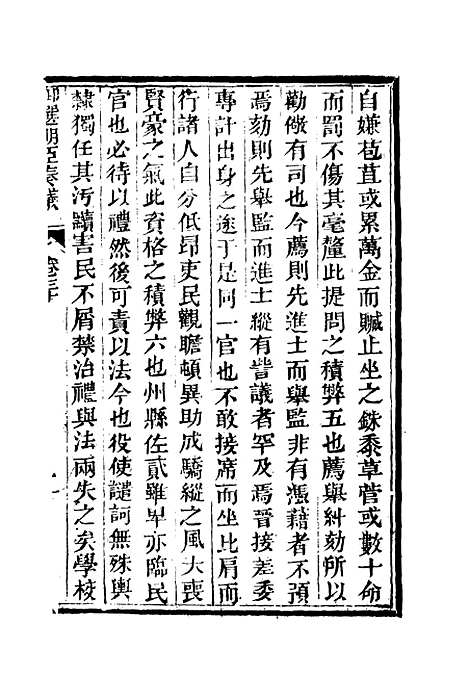 自嫌苞苴或累萬金而贓止坐之銖黍草菅或數十命
而罰不傷其毫釐此提問之積弊五也薦舉糾劾所以
勸儆有司也今薦則先進士而舉監非有憑藉者不預
焉劾則先舉監而進士縱有訾議者罕及焉晉接差委
專計出身之途于是同一官也不敢接席而坐比肩而
行諸人自分低昂吏民觀瞻頓異助成驕縱之風大喪
賢豪之氣此資格之積弊六也州縣佐貳雖卑亦臨民
官也必待以禮然後可責以法今也役使譴訶無殊輿
隸獨任其汚黷害民不屑禁治禮與法兩失之矣學校
御選明臣奏議 卷三十